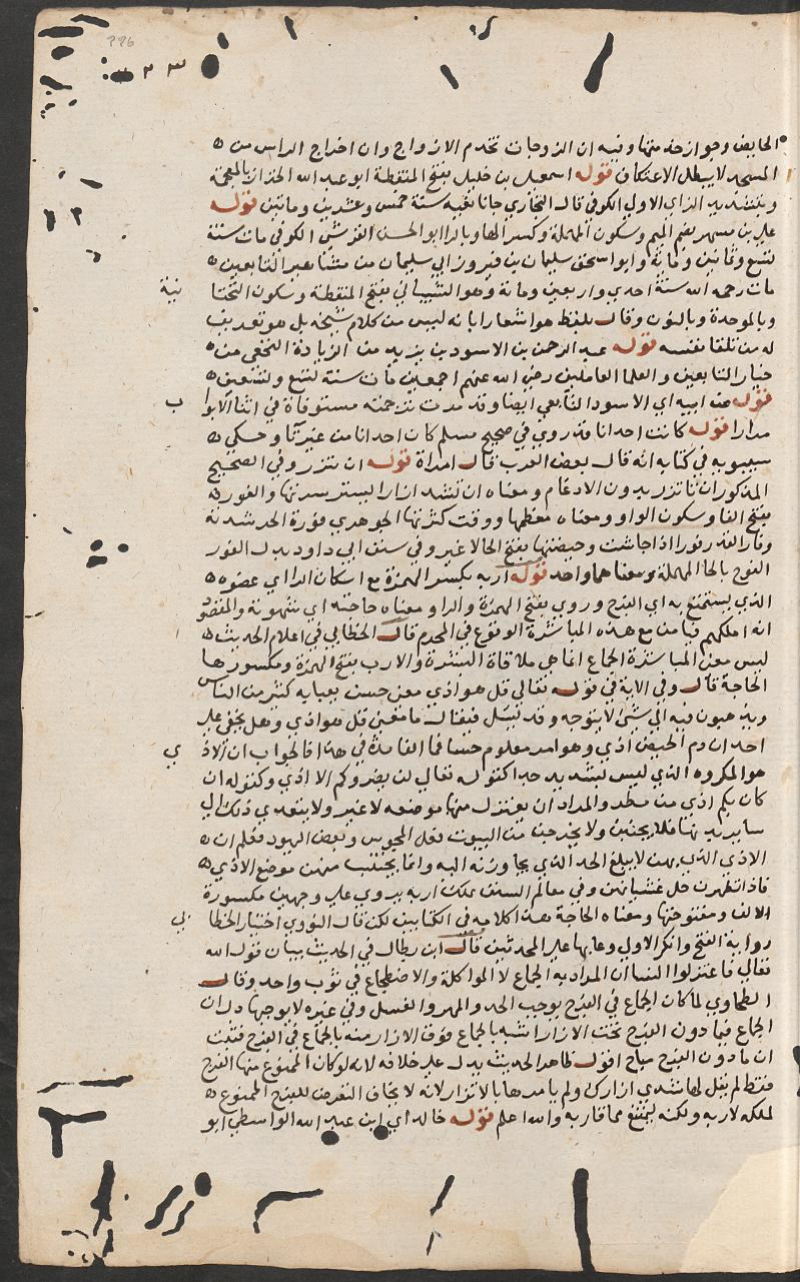 ٢٢٦
٢٣٠
الحايض وجواز خدمتها وفيه ان الزوجات تخدم الازواج وان اخراج الراس من
المسجد لا يبطل الاعتكاف قوله اسمعيل بن خليل بفتح المنقطة ابو عبد الله الخزاز بالمعجمة
وبتشديد الزاي الاولى الكوفي قال البخاري جانا نعيه سنة خمس وعشرين ومائتين قوله
علي بن مسهر بضم الميم وسكون المهملة وكسر الها وبالرا ابو الحسن القرشي الكوفي مات سنة
تسع وثمانين ومائة وابو اسحق سليمان بن فيروز ابي سليمان من مشاهير التابعين
مات رحمه الله سنة احدى واربعين ومائة وهو الشيباني بفتح المنقطة وسكون التحتا
نية
وبالموحدة وبالنون وقال بلفظ هو اشعارا بانه ليس من كلام شيخه بل هو تعريف
له من تلقا نفسه قوله عبد الرحمن بن الاسود بن يزيد من الزيادة النخعي من
خيار التابعين والعلما العاملين رضي الله عنهم اجمعين مات سنة تسع وتسعين
قوله عن ابيه اي الاسود التابعي ايضا وقد مرت ترجمته مستوفاة في اثنا الابوا
ب
مرارا قوله كانت احدانا قد روي في صحيح مسلم كان احدانا من غير تا وحكى
سيبويه في كتابه انه قال بعض العرب قال امراة قوله ان تتزر وفي الصحيح
المذكور ان تاتزر بدون الادغام ومعناه ان تشد ازارا يستر سرتها والفور
بفتح الفا وسكون الواو ومعناه معظمها ووقت كثرتها الجوهري فورة الحر شدته
وفار القدر فورا اذا جاشت وحيضتها بفتح الحا لا غير وفي سنن ابي داود بدل الفور
الفوح بالحا المهملة ومعناهما واحد قوله اربه بكسر الهمزة مع اسكان الرا اي عضوه
الذي يستمتع به اي الفرج وروي بفتح الهمزة والرا ومعناه حاجته اي شهوته والمقصو
انه املكهم فيامن مع هذه المباشرة الوقوع في المحرم قال الخطابي في اعلام الحديث
ليس معنى المباشرة الجماع انما هي ملاقاة البشرة والارب بفتح الهمزة ومكسورها
الحاجة قال وفي الاية في قوله تعالى قل هو اذى معنى حسن يعيا به كثير من الناس
ويذهبون فيه الى شي لا يتوجه وقد يسئل فيقال ما معنى قل هو اذى وهل يخفى على
احد ان دم الحيض اذى وهو امر معلوم حسا فما الفايدة في هذا فالجواب ان الاذ
ي
هو المكروه الذي ليس بشديد جدا كقوله تعالى لن يضروكم الا اذى وكقوله ان
كان بكم اذى من مطر والمراد ان يعتزل منها موضعه لا غير ولا يتعدى ذلك الى
ساير بدنها فلا يجتنبن ولا يخرجن من البيوت فعل المجوس وبعض اليهود فعلم ان
الاذى الذي بهن لا يبلغ الحد الذي يجاوزنه اليه وانما يجتنب منهن موضع الاذى
فاذا تطهرن حل غشيانهن وفي معالم السنن يملك اربه يروى على وجهين مكسورة
الالف ومفتوحتها ومعناه الحاجة هذا كلامه في الكتابين لكن قال النووي اختيار الخطا
بي
رواية الفتح وانكر الاولى وعابها على المحدثين قال ابن بطال في الحديث بيان قوله الله
تعالى فاعتزلوا النسا ان المراد به الجماع لا المواكلة والاضطجاع في ثوب واحد وقال
الطحاوي لما كان الجماع في الفرج يوجب الحد والمهر والغسل وفي غيره لا يوجبها دل ان
الجماع فيما دون الفرج تحت الازار اشبه بالجماع فوق الازار منه بالجماع في الفرج فثبت
ان ما دون الفرج مباح اقول ظاهر الحديث يدل على خلافه لانه لو كان الممنوع منها الفرج
فقط لم يقل لها شدي ازارك ولم يامرها بالاتزار لانه لا يخاف التعرض للفرج الممنوع
لملكه لاربه ولكنه يمتنع مما قاربه والله اعلم قوله خالد اي ابن عبد الله الواسطي ابو